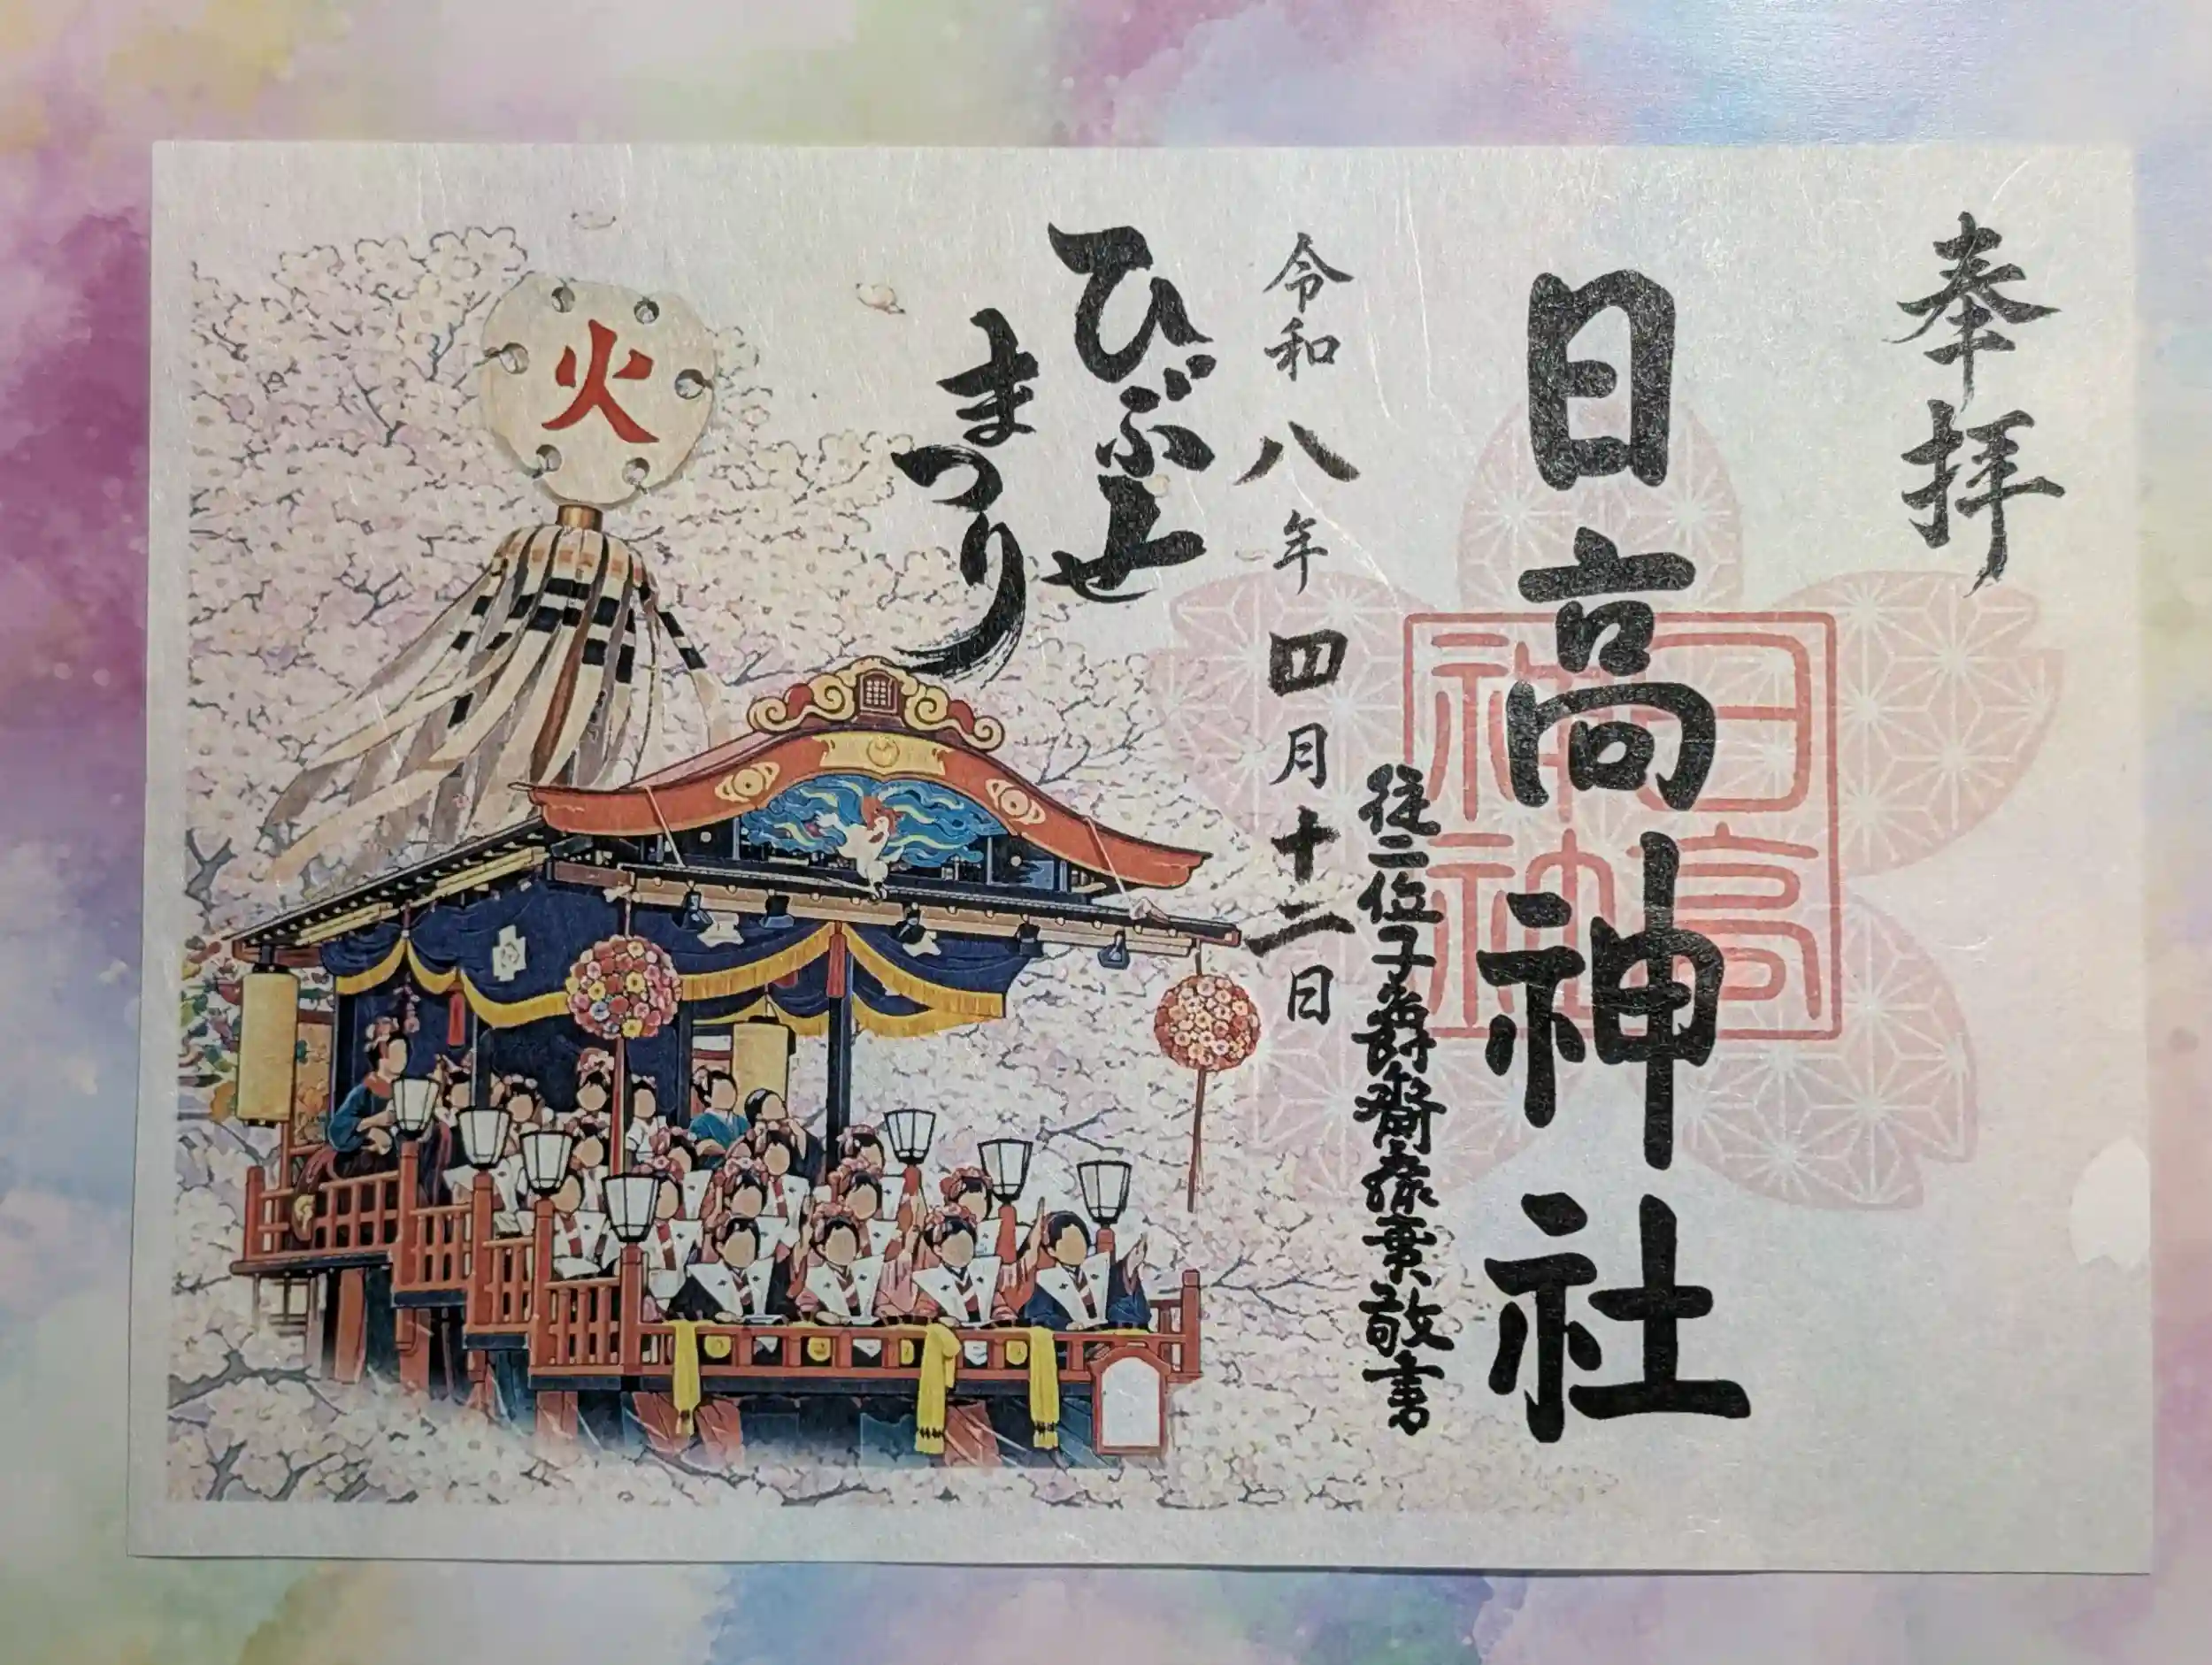 奉拝
日高神社
日高
神社
従二位子爵齋藤實敬書
令和八年四月十二日
ひぶせ
まつり
火